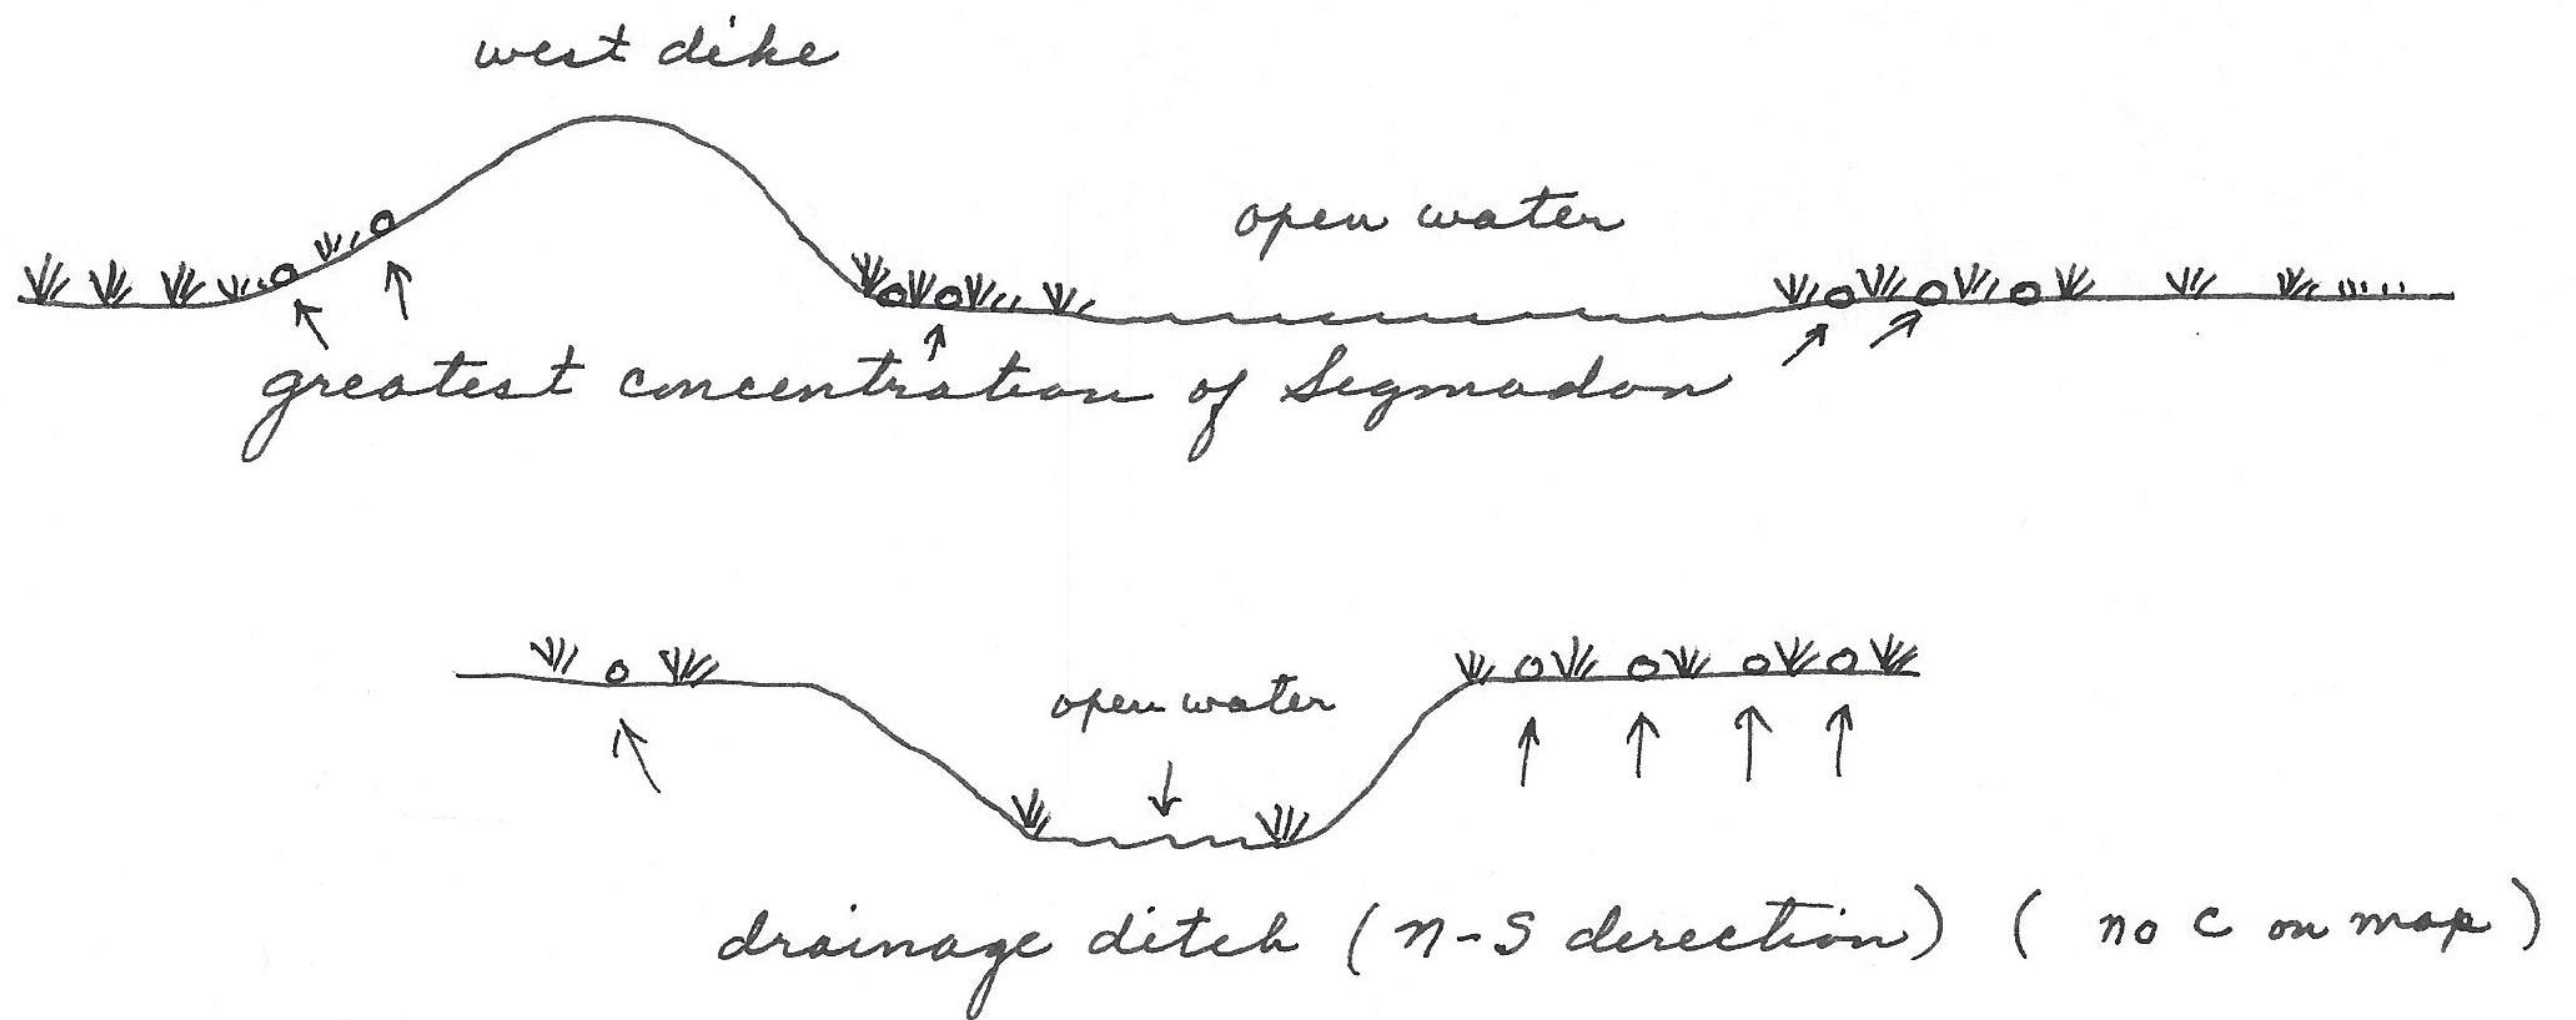 west dike
open water
greatest concentration of Sigmodon
open water
drainage ditch (N-S direction) ( no C on map )